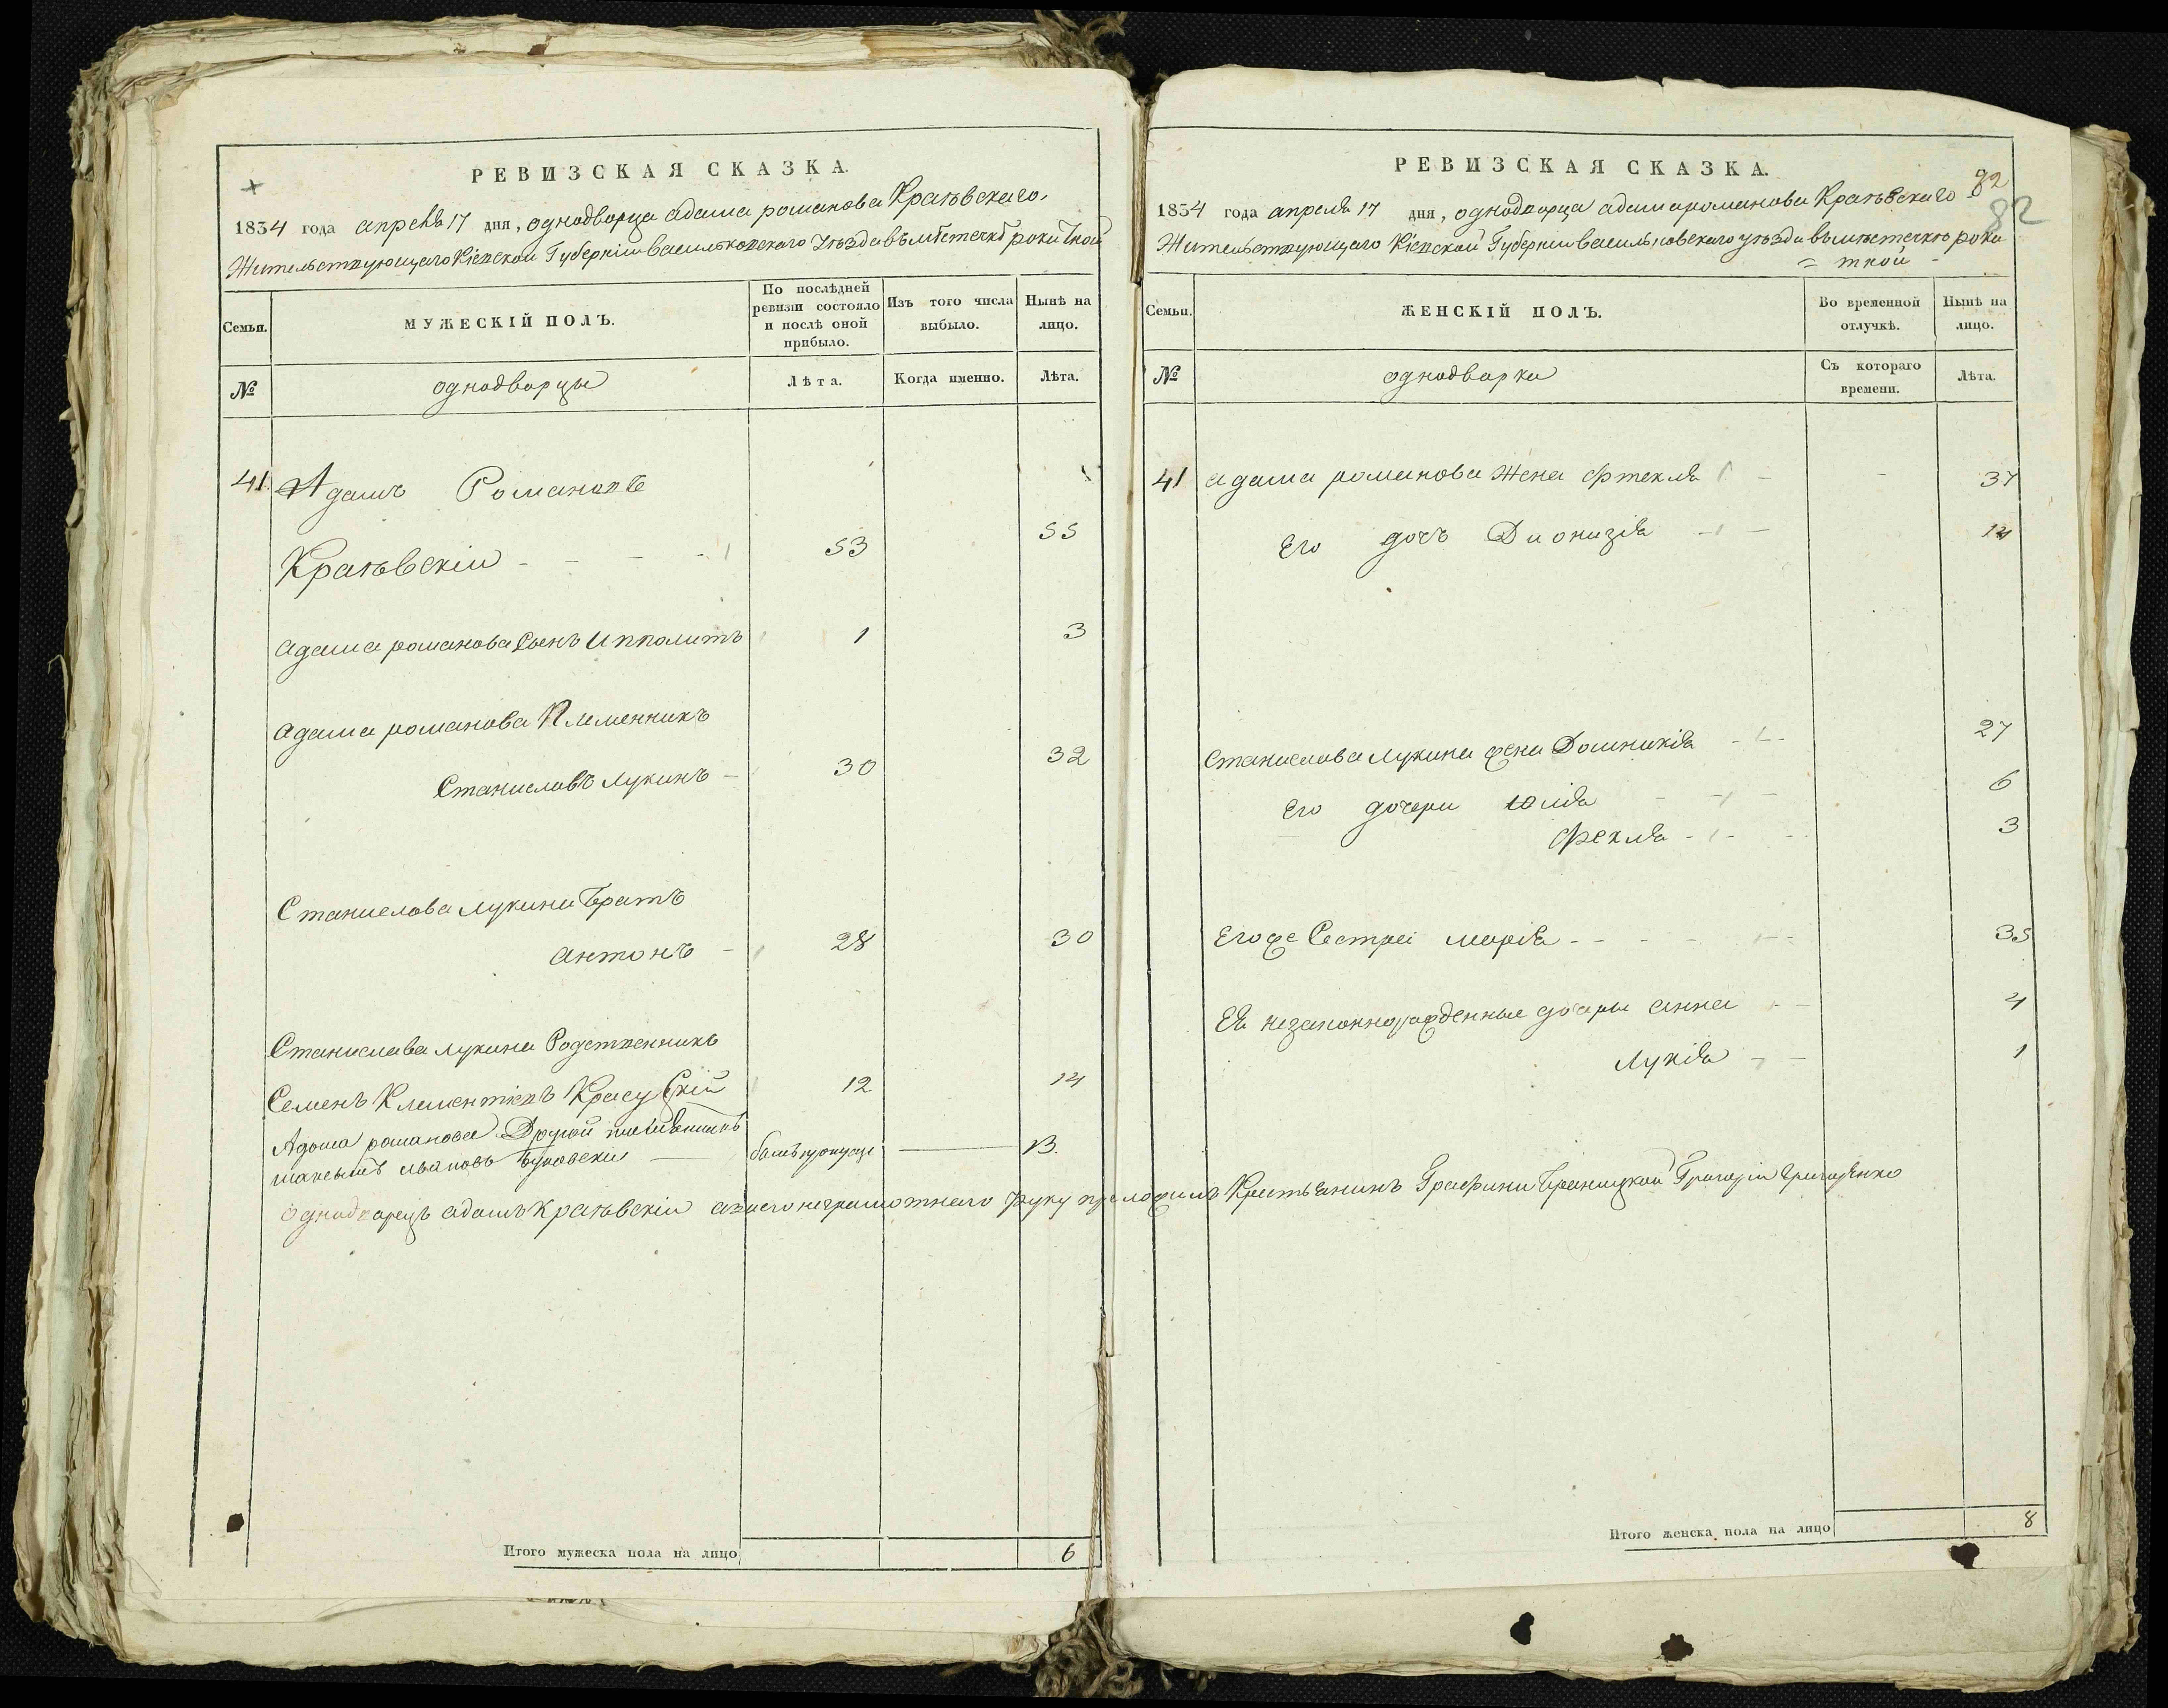 РЕВИЗСКАЯ СКАЗКА.
1834 года апреля 17 дня, однодворца адама романова Краѣвскаго,
Жительствующаго Кіевской Губерніи васильковскаго уѣзда въ мѣстечкѣ рокитной
Семьи.
МУЖЕСКІЙ ПОЛЪ.
По послѣдней ревизіи состояло и послѣ оной прибыло.
Изъ того числа выбыло.
Нынѣ на лицо.
№
однодворцы
Лѣта.
Когда именно.
Лѣта.
41 Адамъ Романовъ
Краѣвскіи 53 55
адама романова Сынъ Ипполитъ 1 3
адама романова Племенникъ
Станиславъ Лукинъ 30 32
Станислава лукина Братъ
антонъ 28 30
Станислава лукина Родственникъ
Семенъ Клементіевъ Красускій 12 14
Адама романова Другой племянникъ
13
однодворецъ адамъ Краѣвскіи а вместо неграмотнаго руку приложилъ Крестьянинъ Графини Браницкой Григорій Григоренко
Итого мужеска пола на лицо 6
РЕВИЗСКАЯ СКАЗКА.
82
82
1834 года апреля 17 дня, однодворца адама романова Краѣвскаго
Жительствующаго Кіевской Губерніи васильковскаго уѣзда въ мѣстечкѣ роки
= тной -
Семьи.
ЖЕНСКІЙ ПОЛЪ.
Во временной отлучкѣ.
Нынѣ на лицо.
№
однодворки
Съ котораго времени.
Лѣта.
41 адама романова Жена Фтекля 37
Его дочъ Дионизія 14
Станислава лукина жена Доминикія 27
Его дочери юлія 6
Фекля 3
Его же Сестра марія 35
Ея незаконнорожденные дочери анна 4
Лукія 1
Итого женска пола на лицо 8